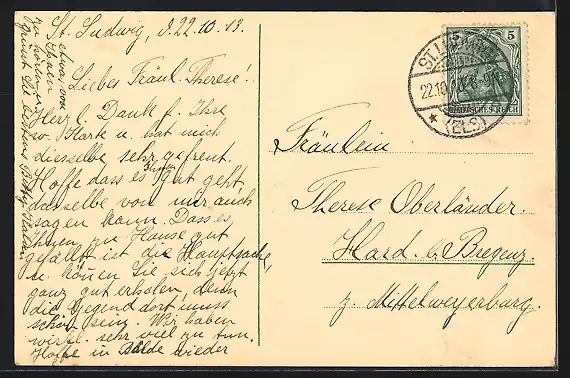 St. Ludwig, d. 22.10.13.
Liebes Fräul. Therese!
Herzl. Dank f. Ihre
w. Karte u. hat mich
dieselbe sehr gefreut.
Hoffe dass es Ihnen gut geht,
dasselbe von mir auch
sagen kann. Dass es
Ihnen zu Hause gut
gefällt ist die Hauptsache,
u. können Sie sich jetzt
ganz gut erholen, denn
die Gegend dort muss
schön sein. Wir haben
wirkl. sehr viel zu tun,
Hoffe in Bälde wieder
etwas von
Ihnen
zu hören u.
grüsst Sie bestens
ST. LUDWIG
22.10.13 8-9
(ELS)
5
DEUTSCHES REICH
Fräulein
Therese Oberländer.
Hard. b. Bregenz.
z. Mittelweyerburg.